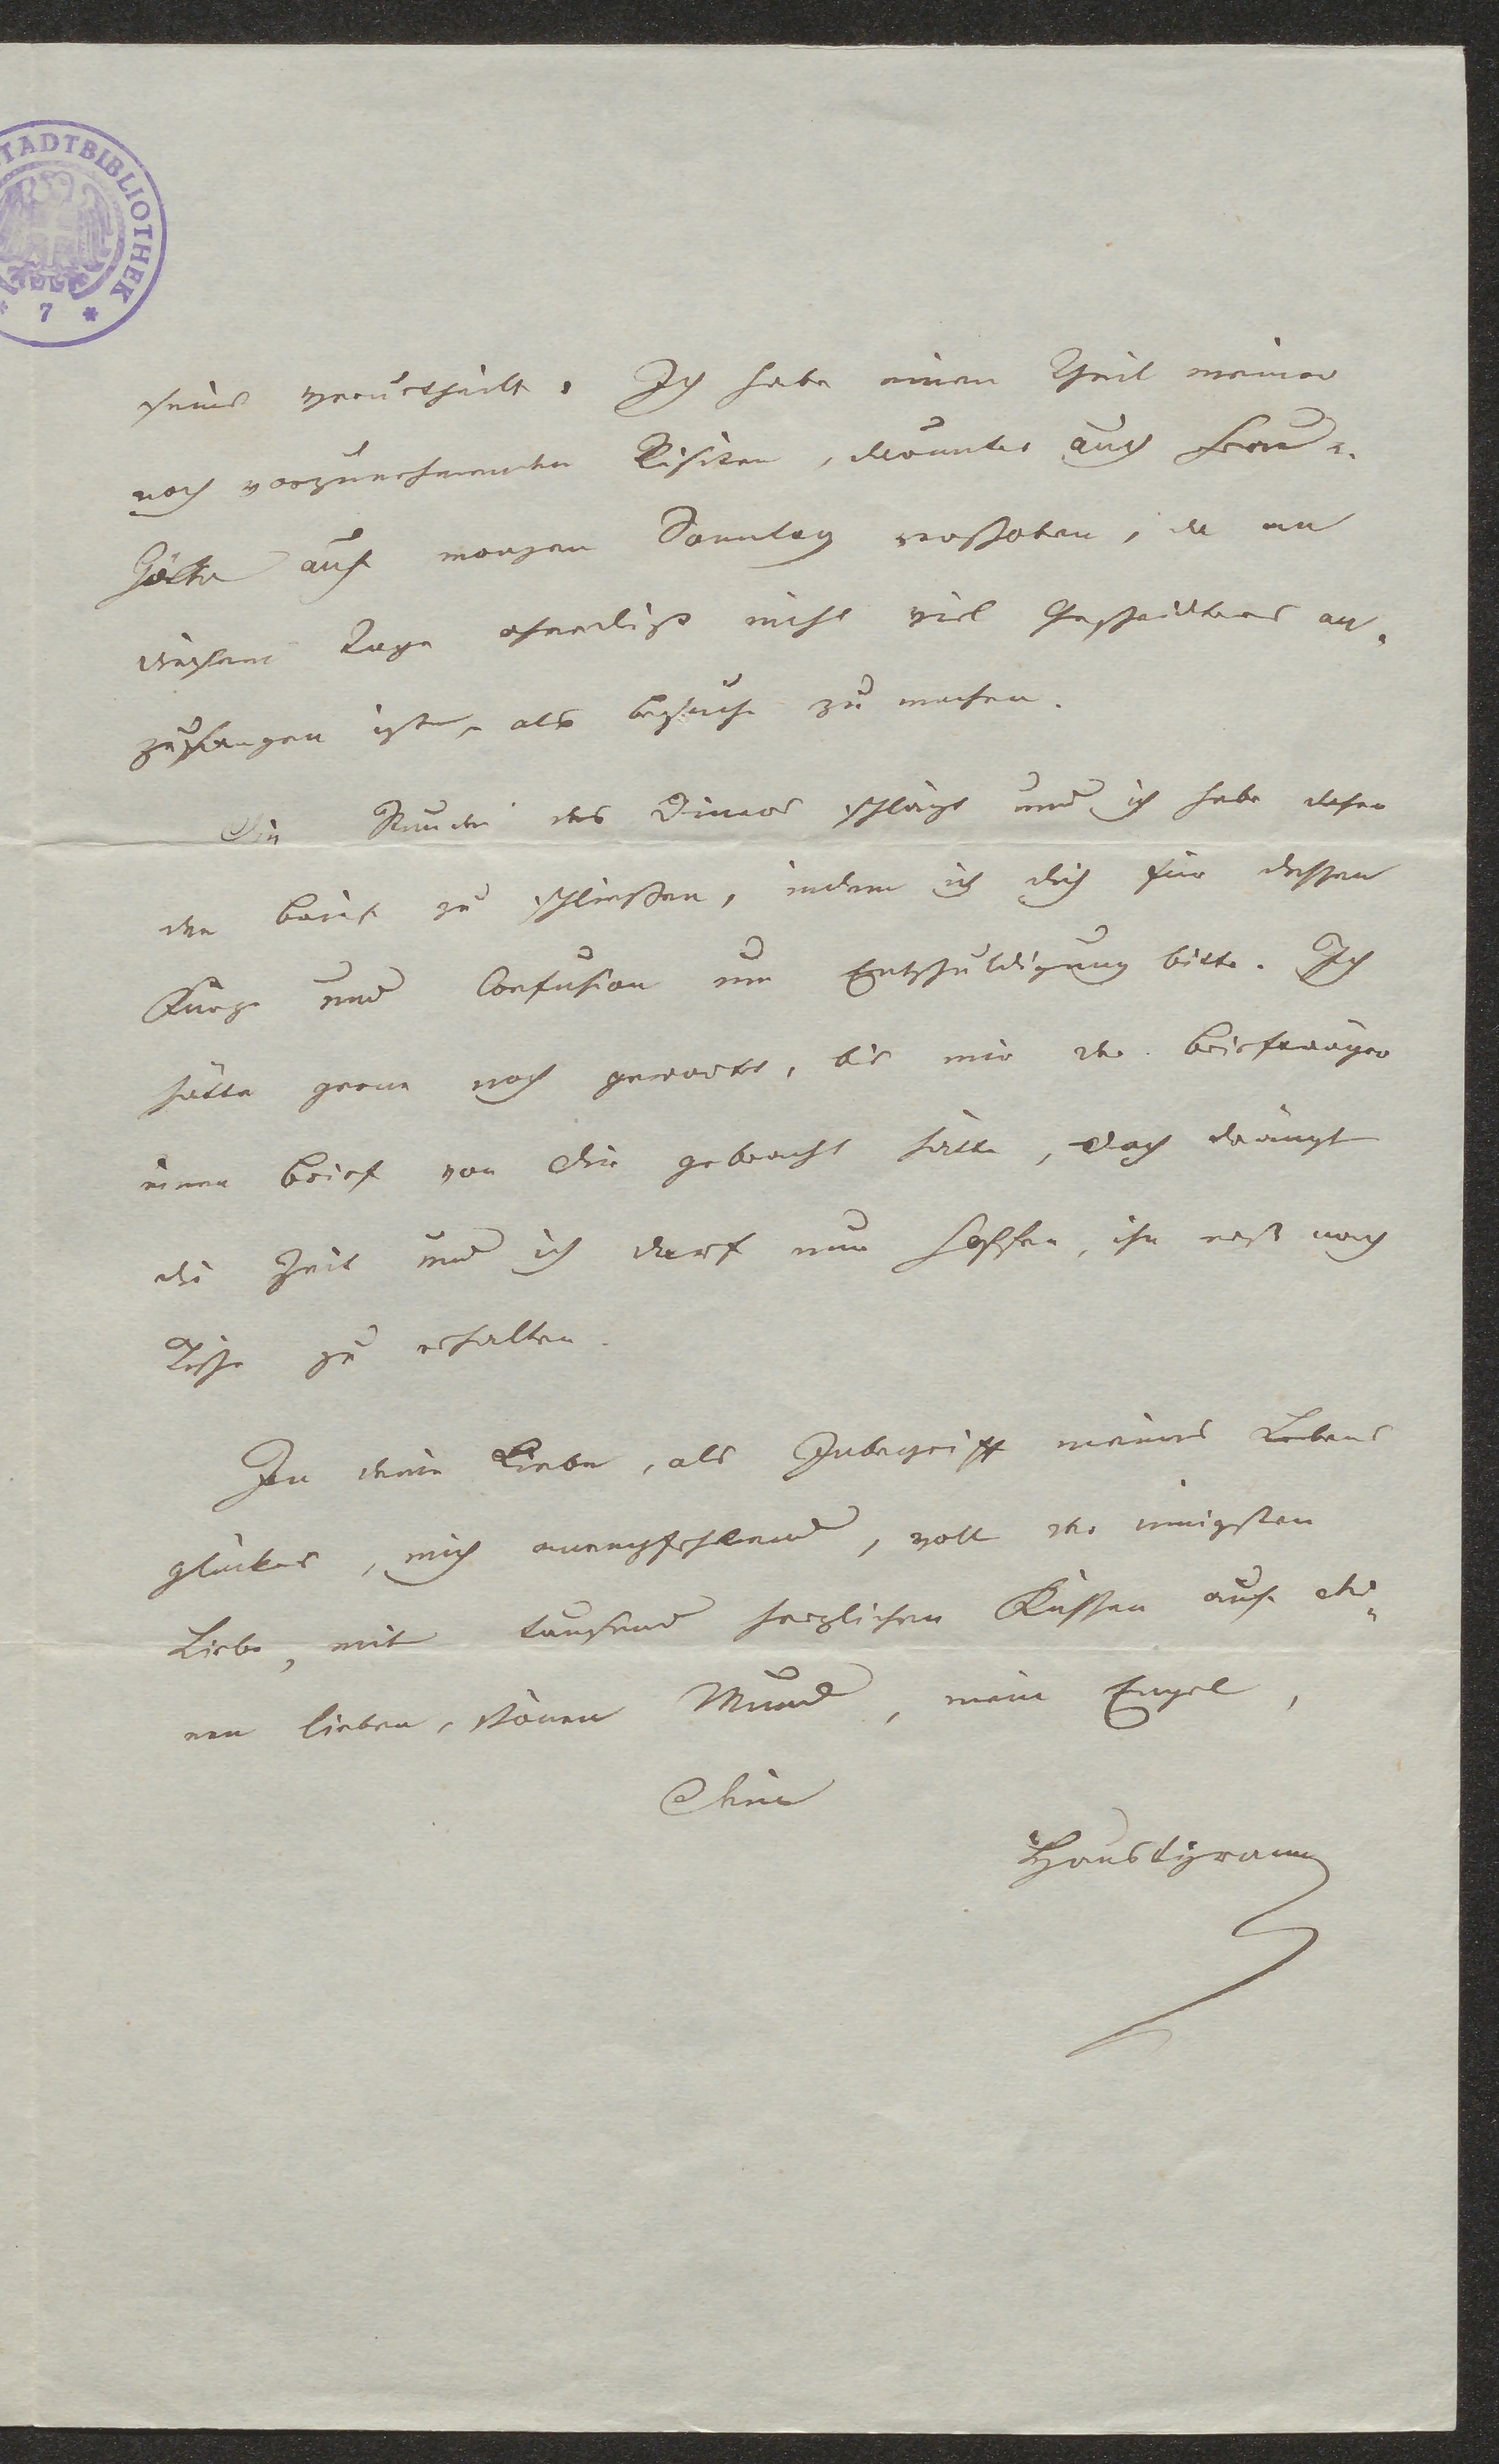 STADTBIBLIOTHEK
* 7 *
seins verurtheilt. Ich habe einen Theil meiner
noch vorzunehmenden Visiten, darunter auch
auf morgen Sonntag verschoben, da an
diesem Tage ohnedieß nicht viel Gescheidteres an-
zufangen ist, als Besuche zu machen.
Die Stunde des Diners schlägt und ich habe daher
den Brief zu schließen, indem ich dich für dessen
Kürze und Confusion um Entschuldigung bitte. Ich
hätte gerne noch gewartet, bis mir der Briefträger
einen Brief von Dir gebracht hätte, doch drängt
die Zeit und ich darf nur hoffen, ihn erst nach
Tisch zu erhalten.
In deine Liebe, als Inbegriff meines Lebens
glückes, mich anempfehlend, voll der innigsten
Liebe, mit tausend herzlichen Küssen auf dei-
nen lieben, schönen Mund, mein Engel,
Dein
Haustyrann